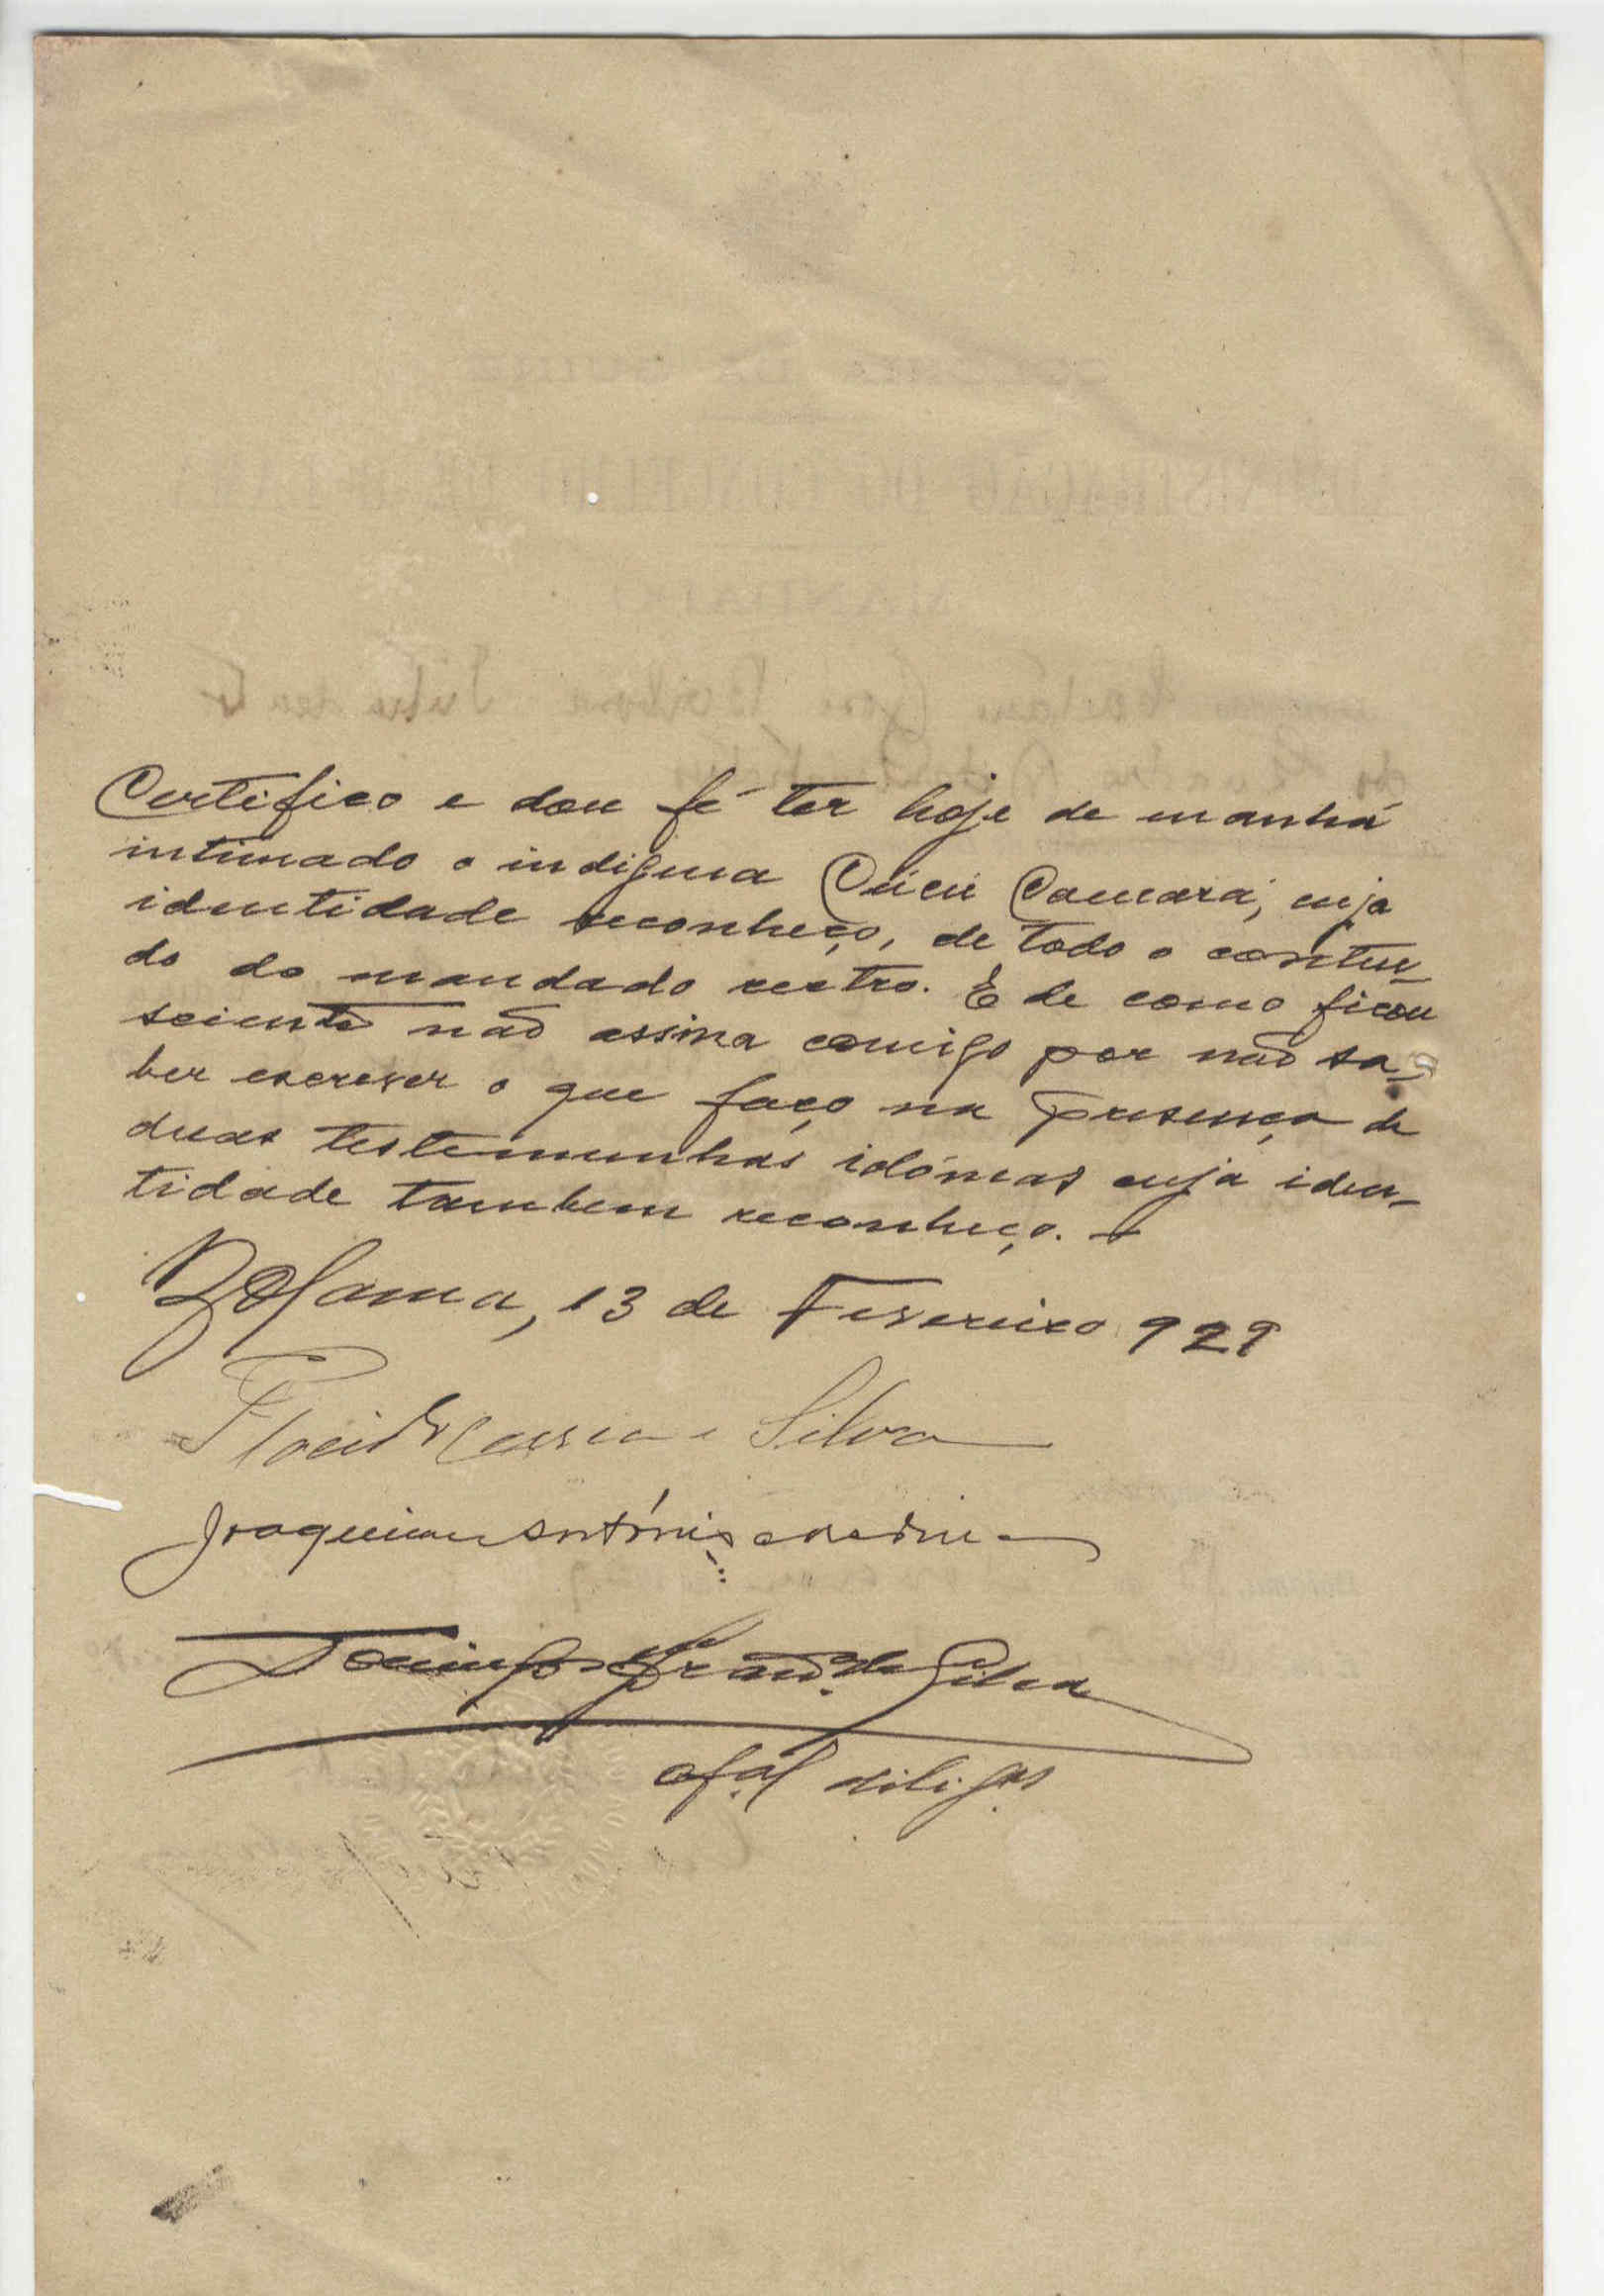 Certifico e dou fé ter hoje de manhã
intimado o indigena Cúcú Camará, cuja
identidade reconheço, de todo o conteu-
do do mandado rectro. E de como ficou
sciente não assina comigo por não sa-
ber escrever o que faço na presença de
duas testemunhas idóneas cuja iden-
tidade tambem reconheço.
Bolama, 13 de Fevereiro 929
Silva
Joaquim António
Domingos da Silva
ofal diligas